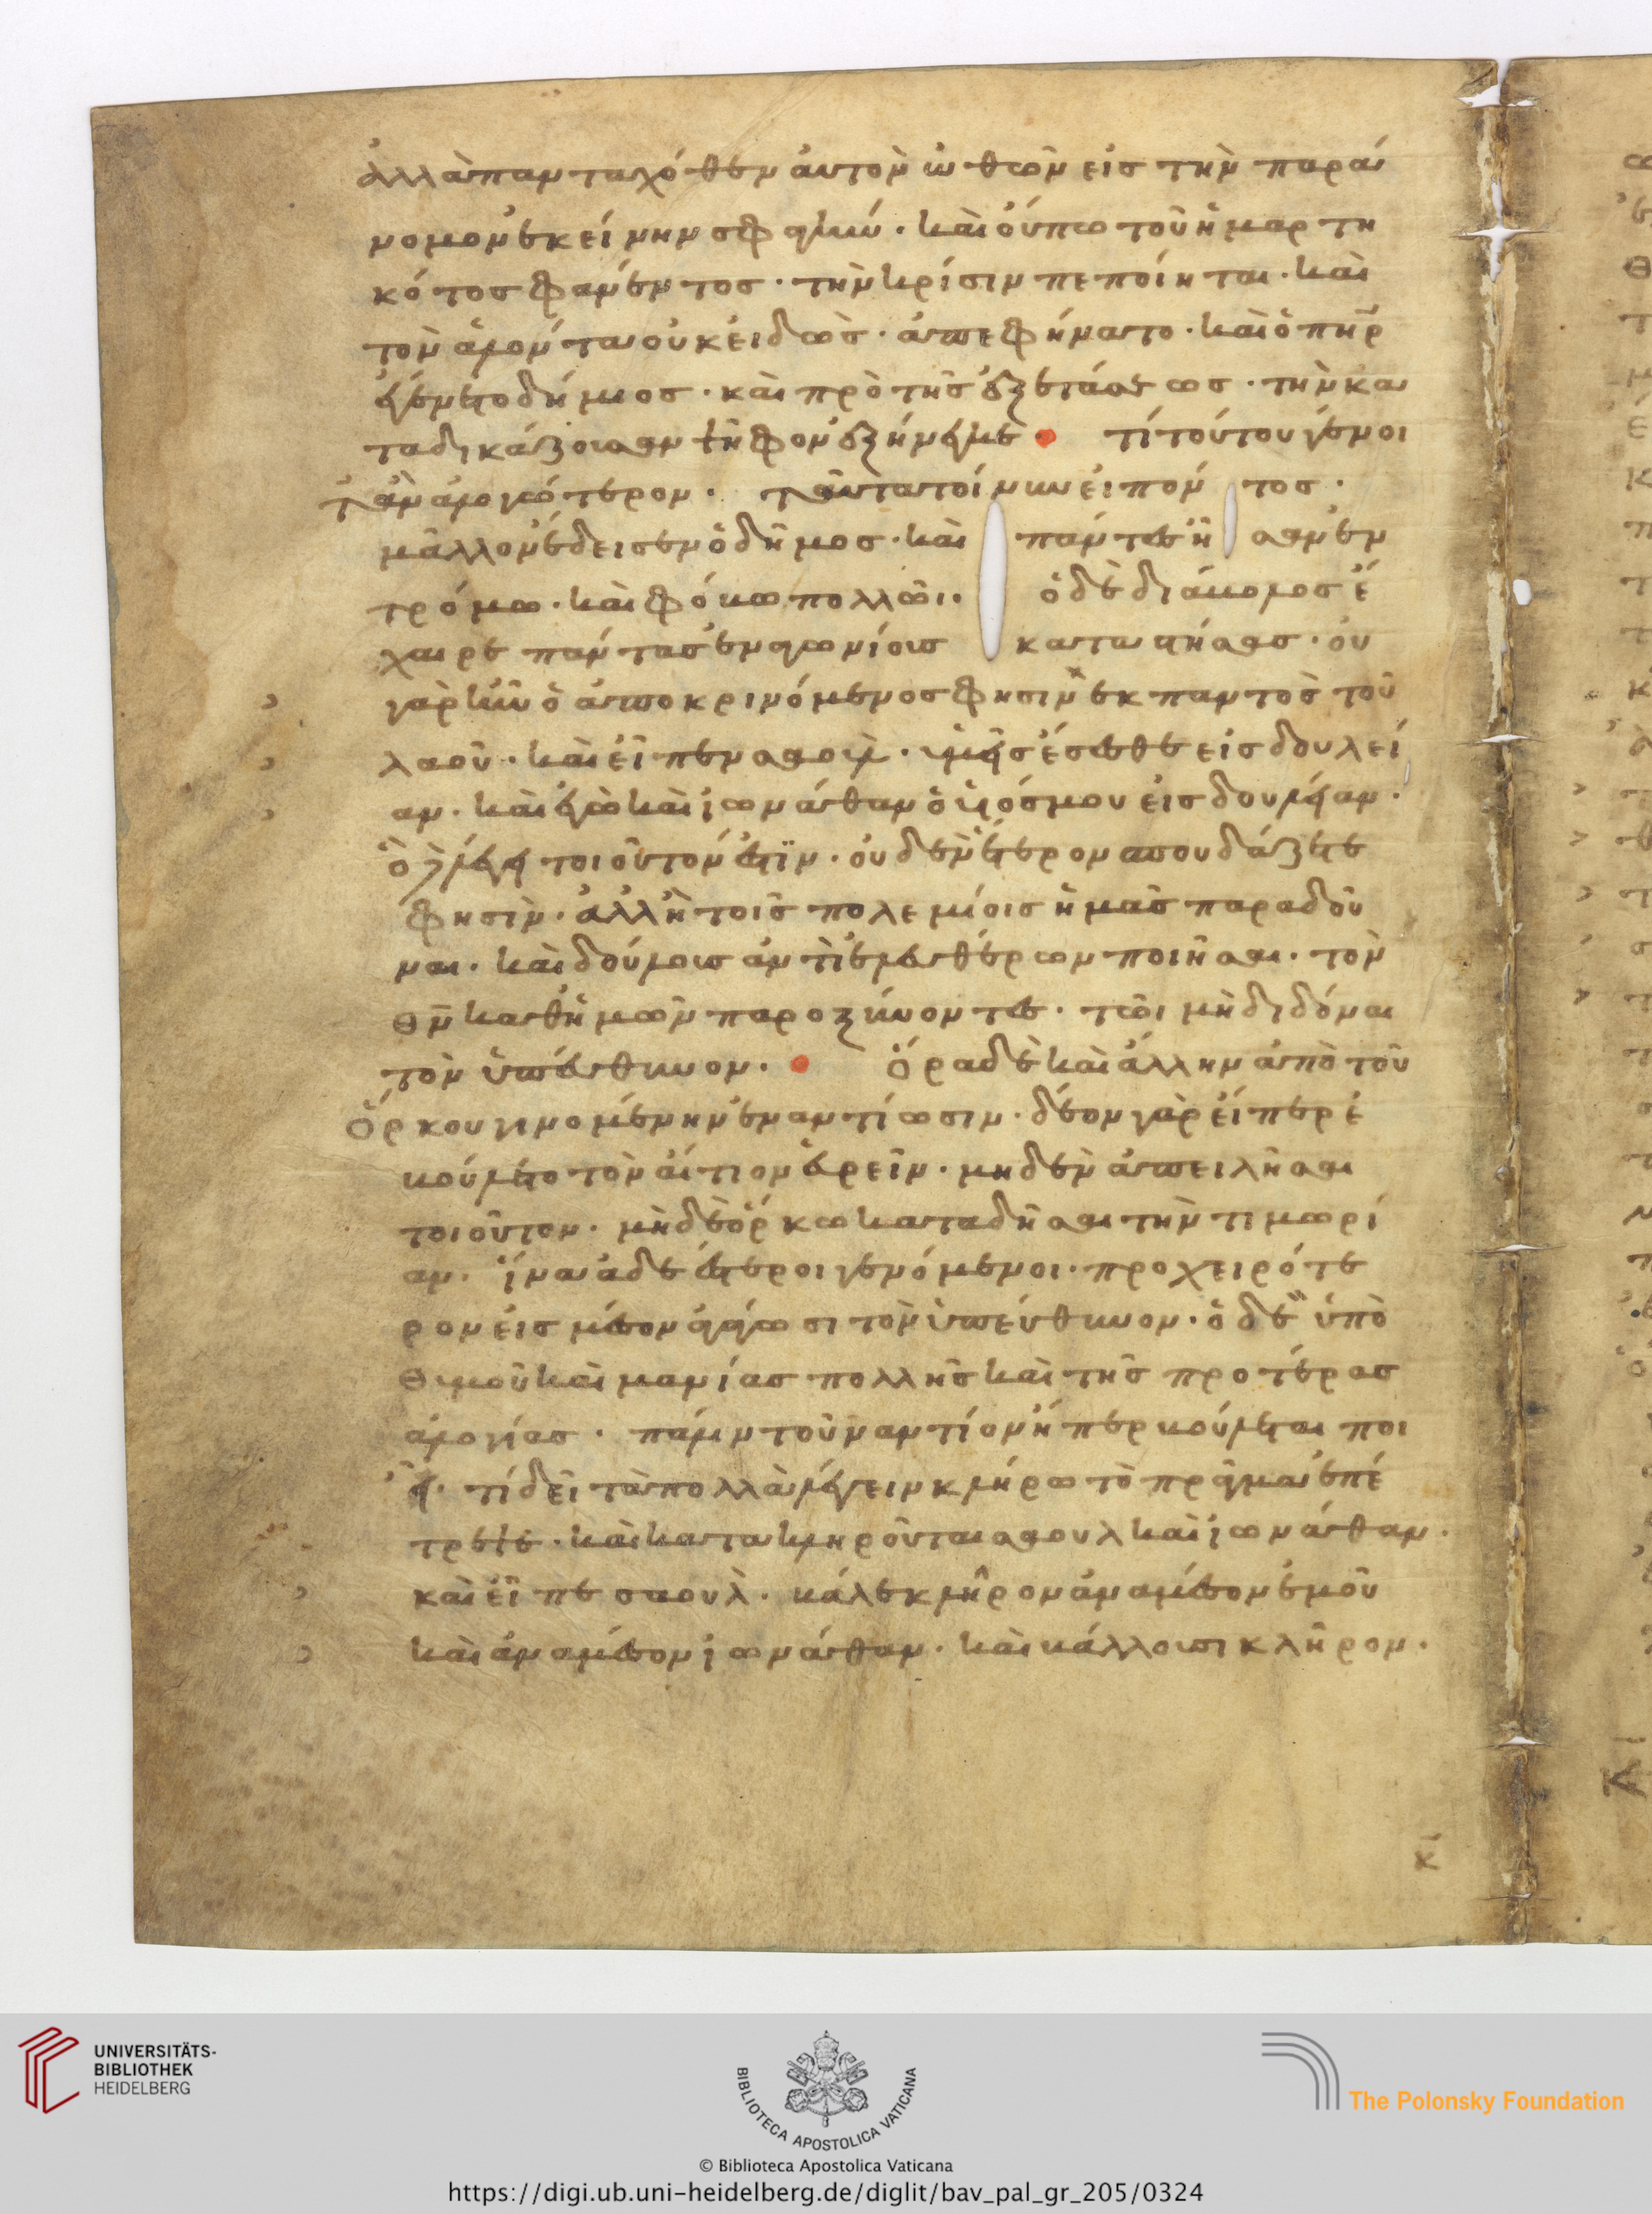 ἀλλὰ πανταχόθεν ἀυτὸν ὠθῶν εἰς τὴν παρά
νομον ἐκείνην σφαγήν· καὶ ὄυπω τοῦ ἡμαρτη
κότος φανέντος· τὴν κρίσιν πεποίηται· καὶ
τὸν ἁλόντα οὐκ εἰδὼς· ἀπεφήνατο· καὶ ὁ πὴρ
ἐγένετο δήμιος· καὶ πρὸ τῆς ἐξετάσεως· τὴν κα
ταδικάζουσαν ψῆφον ἐξήνεγκε· τί τούτου γένοι
τ' ἂν ἀλογώτερον· ταῦτα τοίνυν ειπόν τος·
μᾶλλον ἔδεισεν ὁ δῆμος· καὶ πάντες ἦσαν ἐν
τρόμω· καὶ φόβω πολλῶι· ὁ δὲ διάβολος ἔ
χαιρε πάντας ἐναγωνίους καταστήσας· οὐ
γὰρ ἦν ὁ ἀποκρινόμενος φησιν ἐκ παντὸς τοῦ
λαοῦ· καὶ εἶπεν σαοὺλ· ὑμεῖς ἔσεσθε εἰς δουλεί
αν· καὶ ἐγὼ καὶ ἰωνάθαν ὁ υἱός μου εἰς δουλείαν·
ὃ λέγει τοιοῦτον ἐστϊν· οὐδεν ἕτερον σπουδάζετε
φησὶν· ἀλλ' ἢ τοῖς πολεμίοις ἡμᾶς παραδοῦ
ναι· καὶ δούλους ἀντὶ ἐλευθέρων ποιῆσαι· τὸν
θν̄ καθ' ἡμῶν παροξύνοντες· τῶι μὴ διδόναι
τὸν ὑπεύθυνον· Ὅρα δὲ καὶ ἄλλην ἀπὸ τοῦ
ὅρκου γινομένην ἐναντίωσιν· δέον γὰρ εἴπερ ἐ
βούλετο τὸν αἴτιον εὑρεῖν· μηδὲν ἀπειλῆσαι
τοιοῦτον· μὴδὲ ὅρκω καταδῆσαι τὴν τιμωρί
αν· ἵνα ἀδεέστεροι γενόμενοι· προχειρότε
ρον εἰς μέσον ἀγάγωσι τὸν ὑπεύθυνον· ὁ δὲ ὑπὸ
θυμοῦ καὶ μανίας πολλῆς καὶ τῆς προτέρας
ἀλογίας· πάλιν τοὐναντίον ἤπερ βούλεται ποι
εῖ· τί δεῖ τὰ πολλὰ λέγειν κλήρω τὸ πρᾶγμα ἐπέ
τρεψε· καὶ κατακληροῦται σαουλ καὶ ἰωνάθαν·
καὶ εἶπε σαουλ· βάλε κλῆρον ἀναμέσον ἐμοῦ
καὶ ἀναμέσον ἰωνάθαν· καὶ βάλλουσι κλῆρον·
κ̄
UNIVERSITÄTS-
BIBLIOTHEK
HEIDELBERG
BIBLIOTECA APOSTOLICA VATICANA
The Polonsky Foundation
© Biblioteca Apostolica Vaticana
https://digi.ub.uni-heidelberg.de/diglit/bav_pal_gr_205/0324